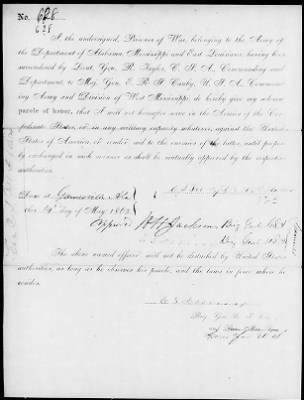 No. 628
628
I the undersigned, Prisoner of War, belonging to the Army of
the Department of Alabama, Mississippi and East Louisiana, having been
surrendered by Lieut. Gen. R. Taylor, C. S. A., Commanding
Department, to Maj. Gen. E. R. S. Canby, U. S. A., Command-
ing Army and Division of West Mississippi, do hereby give my solemn
parole of honor, that I will not hereafter serve in the Armies of the Con-
federate States, or in any military capacity whatever, against the United
States of America, or render aid to the enemies of the latter, until proper-
ly exchanged in such manner as shall be mutually approved by the respective
authorities.
Done at Gainesville Ala
this day of May 1865
Approved W H Jackson Brig Genl C S A
Brig Genl
The above named officer will not be disturbed by United States
authorities, as long as he observes his parole, and the laws in force where he
resides.
Brig Gen U. S.